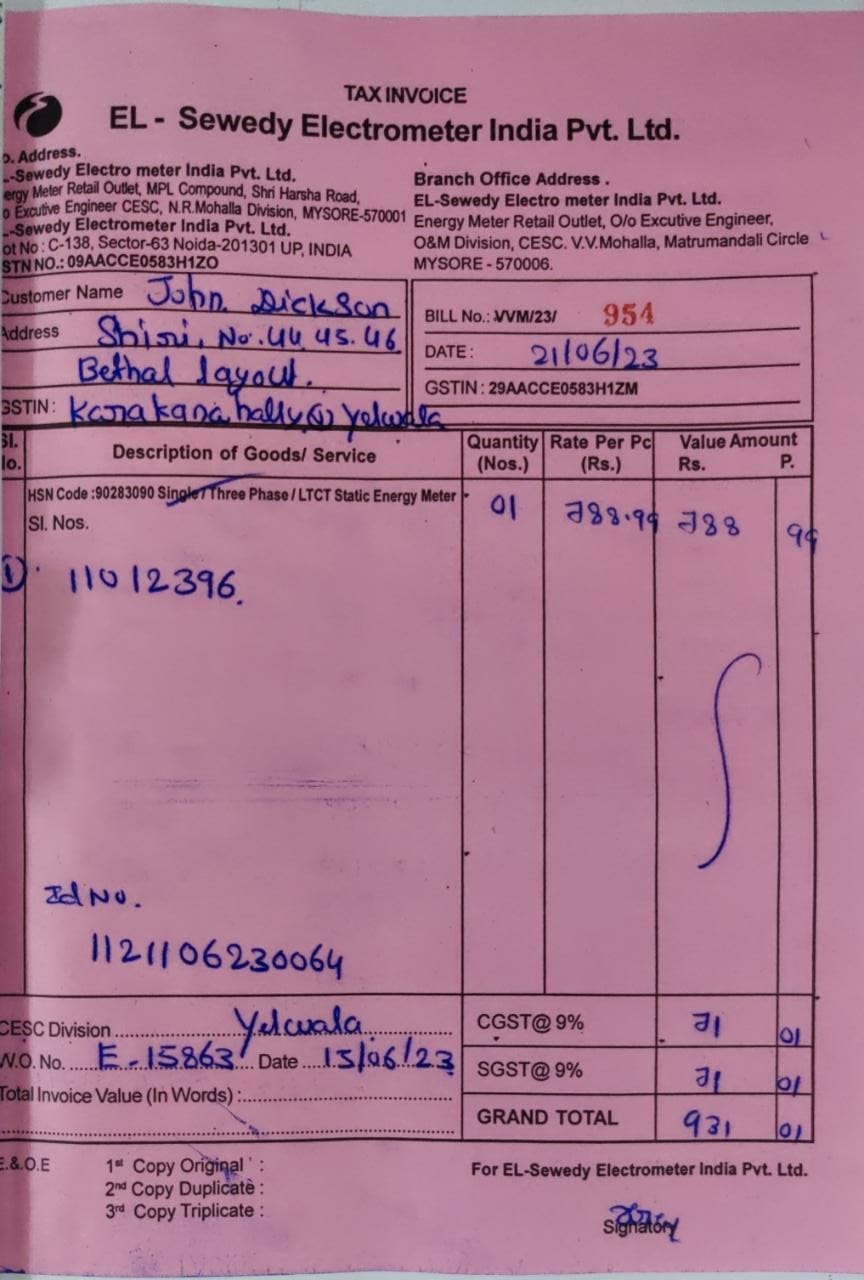 TAX INVOICE
EL - Sewedy Electrometer India Pvt. Ltd.
o. Address.
-Sewedy Electro meter India Pvt. Ltd.
ergy Meter Retail Outlet, MPL Compound, Shri Harsha Road,
o Excutive Engineer CESC, N.R.Mohalla Division, MYSORE-570001
-Sewedy Electrometer India Pvt. Ltd.
ot No : C-138, Sector-63 Noida-201301 UP, INDIA
STN NO.: 09AACCE0583H1ZO
Branch Office Address .
EL-Sewedy Electro meter India Pvt. Ltd.
Energy Meter Retail Outlet, O/o Excutive Engineer,
O&M Division, CESC. V.V.Mohalla, Matrumandali Circle
MYSORE - 570006.
Customer Name John Dickson
Address Shini, No. 44, 45. 46
Bethal layout.
GSTIN : Kanakanahally (v) Yelwala
BILL No.: VVM/23/ 954
DATE : 21/06/23
GSTIN : 29AACCE0583H1ZM
Sl. No. Description of Goods/ Service Quantity (Nos.) Rate Per Pc (Rs.) Value Amount Rs. P.
HSN Code :90283090 Single / Three Phase / LTCT Static Energy Meter 01 788.99 788 99
Sl. Nos.
① 11012396.
Id No.
1121106230064
CESC Division Yelwala CGST@ 9% 71 01
W.O. No. E-15863 Date 15/06/23 SGST@ 9% 71 01
Total Invoice Value (In Words) : GRAND TOTAL 931 01
E.&.O.E
1st Copy Original :
2nd Copy Duplicate :
3rd Copy Triplicate :
For EL-Sewedy Electrometer India Pvt. Ltd.
Signatory